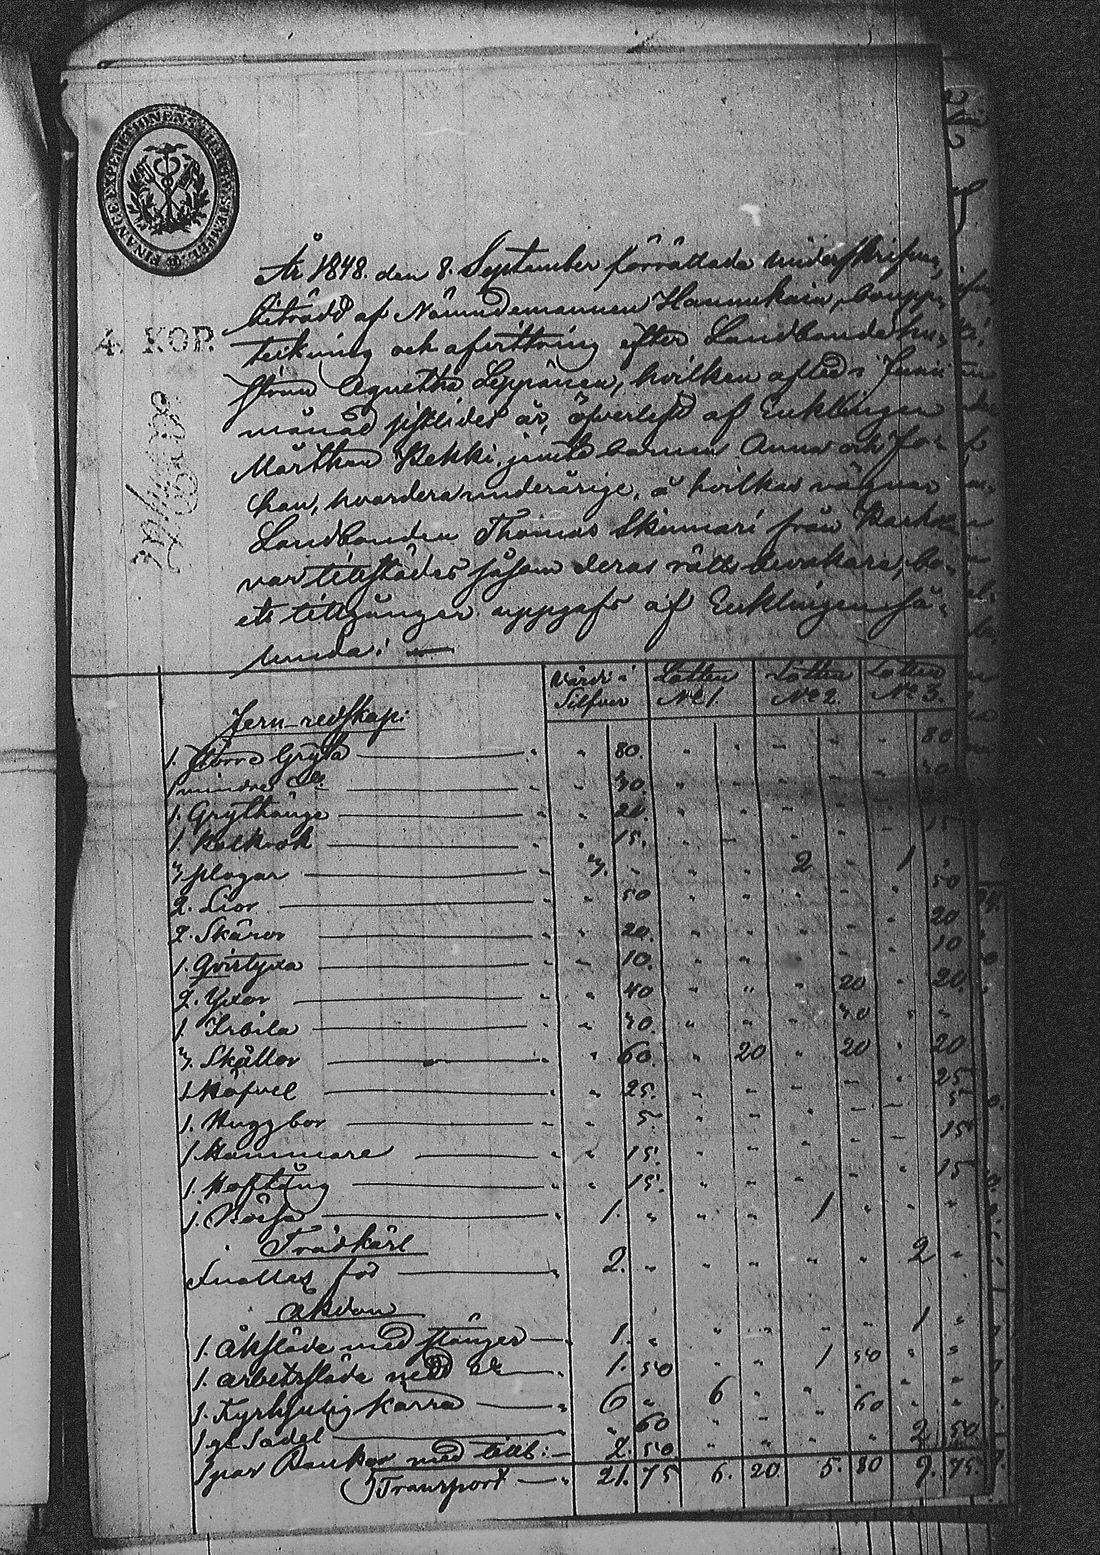 FINANCE EXPEDITIONENS STEMPEL
4. KOP.
År 1848. den 8. September förrättade underskrifven,
biträdd af Nämndemannen Hannukain, bouppteckning
och afvittring efter Landbonde hustrun
Agnetha Leppänen, hvilken afled i Junii
månad sistlidet år, öfverlefd af Enklingen
Mårthen Pekki, jemte barnen Anna och Johan,
hvardera underårige, å hvilkas vägnar
Landbonden Thomas Skinnari från
var tillstädes såsom deras rätts bevakare; boets
tillgångar uppgafs af Enklingen sålunda:
Värde i Silfver Lotten No 1. Lotten No 2. Lotten No 3.
Jern redskap:
1. större Gryta " 80. " " " " " 80
1 mindre do " 30. " " " " " 30
1. Grythänge " 20. " " " "
1. Kalkrok " 15. " " " " " 15
3 plogar 3. " " " 2 " 1 "
2. Liar " 50 " " " " " 50
2. Skäror " 20. " " " " " 20
1. Qvistyxa " 10. " " " " " 10
2. Yxor " 40 " " " 20 " 20
1. Isbila " 30. " " " 30 " "
3. Skällor " 60. " 20 " 20 " 20
1 Höfvel " 25. " " " " " 25
1. Huggbor " 5. " " " " " 5
1 Hammare " 15. " " " " " 15
1. Hoftång " 15. " " " " " 15
1. Börsa 1. " " " 1 " " "
Trädkärl
för 2. " " " " " 2 "
Åkdon
1. Åksläde med stänger 1. " " " " " 1 "
1. arbetssläde med do 1. 50 " " 1 50 " "
1. Kyrkhjulig Kärra 6 " 6 " " " " "
1 gl Sadel " 60 " " " 60 " "
1 par Rankor med tillb: 2. 50 " " " " 2 50
Transport 21. 75 6. 20 5. 80 9. 75.